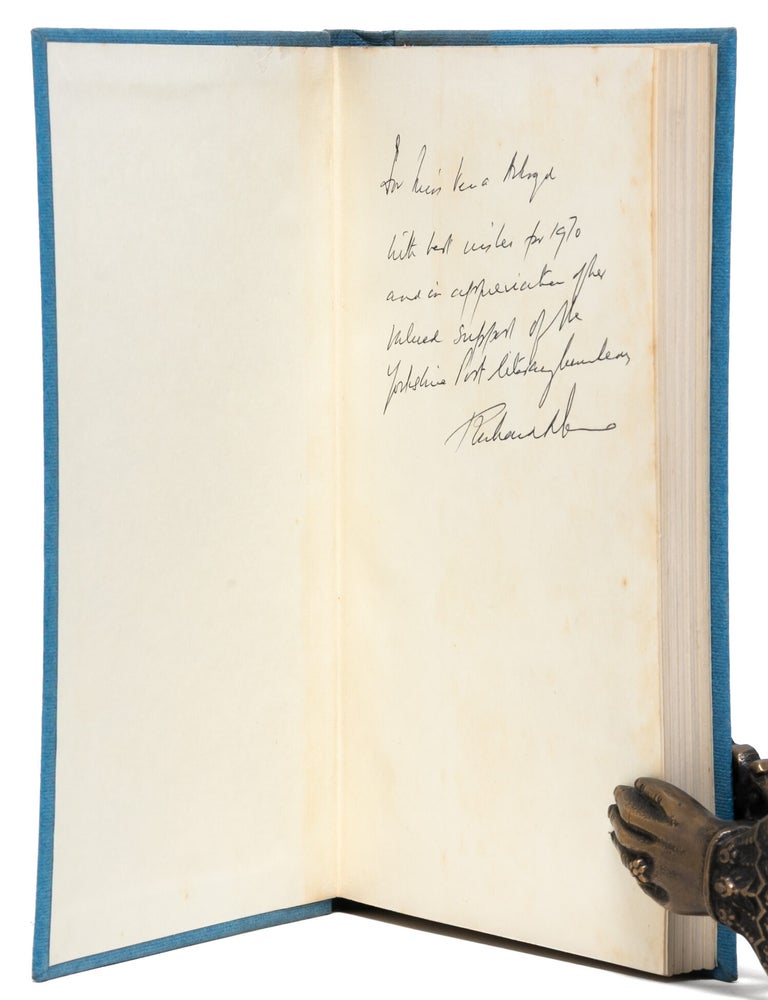 For Miss Vera Lloyd
With best wishes for 1970
and in appreciation of her
valued support of the
Yorkshire Post literary luncheons
Richard